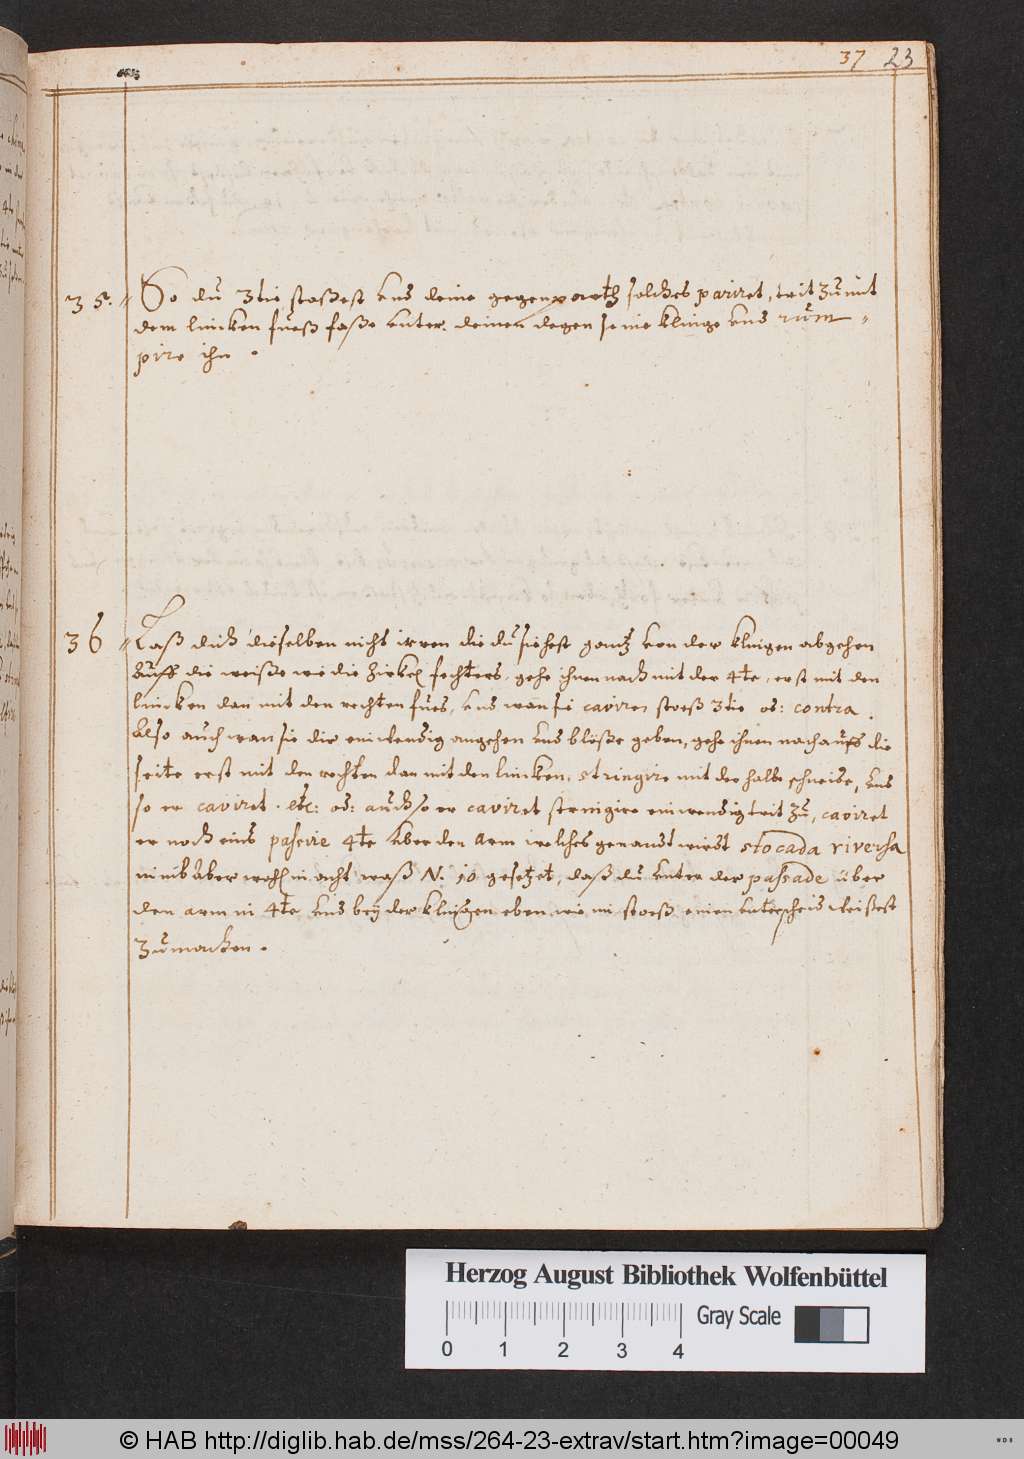 37 23
35. So du 3tie stoßest und deine gegenparth solches pariret, trit zu mit
dem lincken fueß faße unter deinen degen seine klinge und rum-
pire ihn.
36 Laß dich dieselben nicht irren die du siehest gantz von der klingen abgehen
auff die weiße wie die Zirkel fechters, gehe ihnen nach mit der 4te, erst mit den
lincken dan mit den rechten fues, und wan sie caviren stoeß 3tie od: contra.
Also auch wan sie dir einwendig angehen und blöße geben, gehe ihnen nach auff die
seite erst mit den rechten dan mit den lincken, stringire mit der halbe schneide, und
so er caviret. etc: od: auch so er caviret stringire einwendig trit zu, caviret
er noch eins passire 4te über den arm welches genandt wirdt stocada riversa
nimb aber wohl in acht waß N. 10 gesetzet, daß du unter der passade über
den arm in 4te und bey der klingen eben wie im stoeß einen unterscheid weißest
zu machen.
Herzog August Bibliothek Wolfenbüttel
Gray Scale
0 1 2 3 4
© HAB http://diglib.hab.de/mss/264-23-extrav/start.htm?image=00049